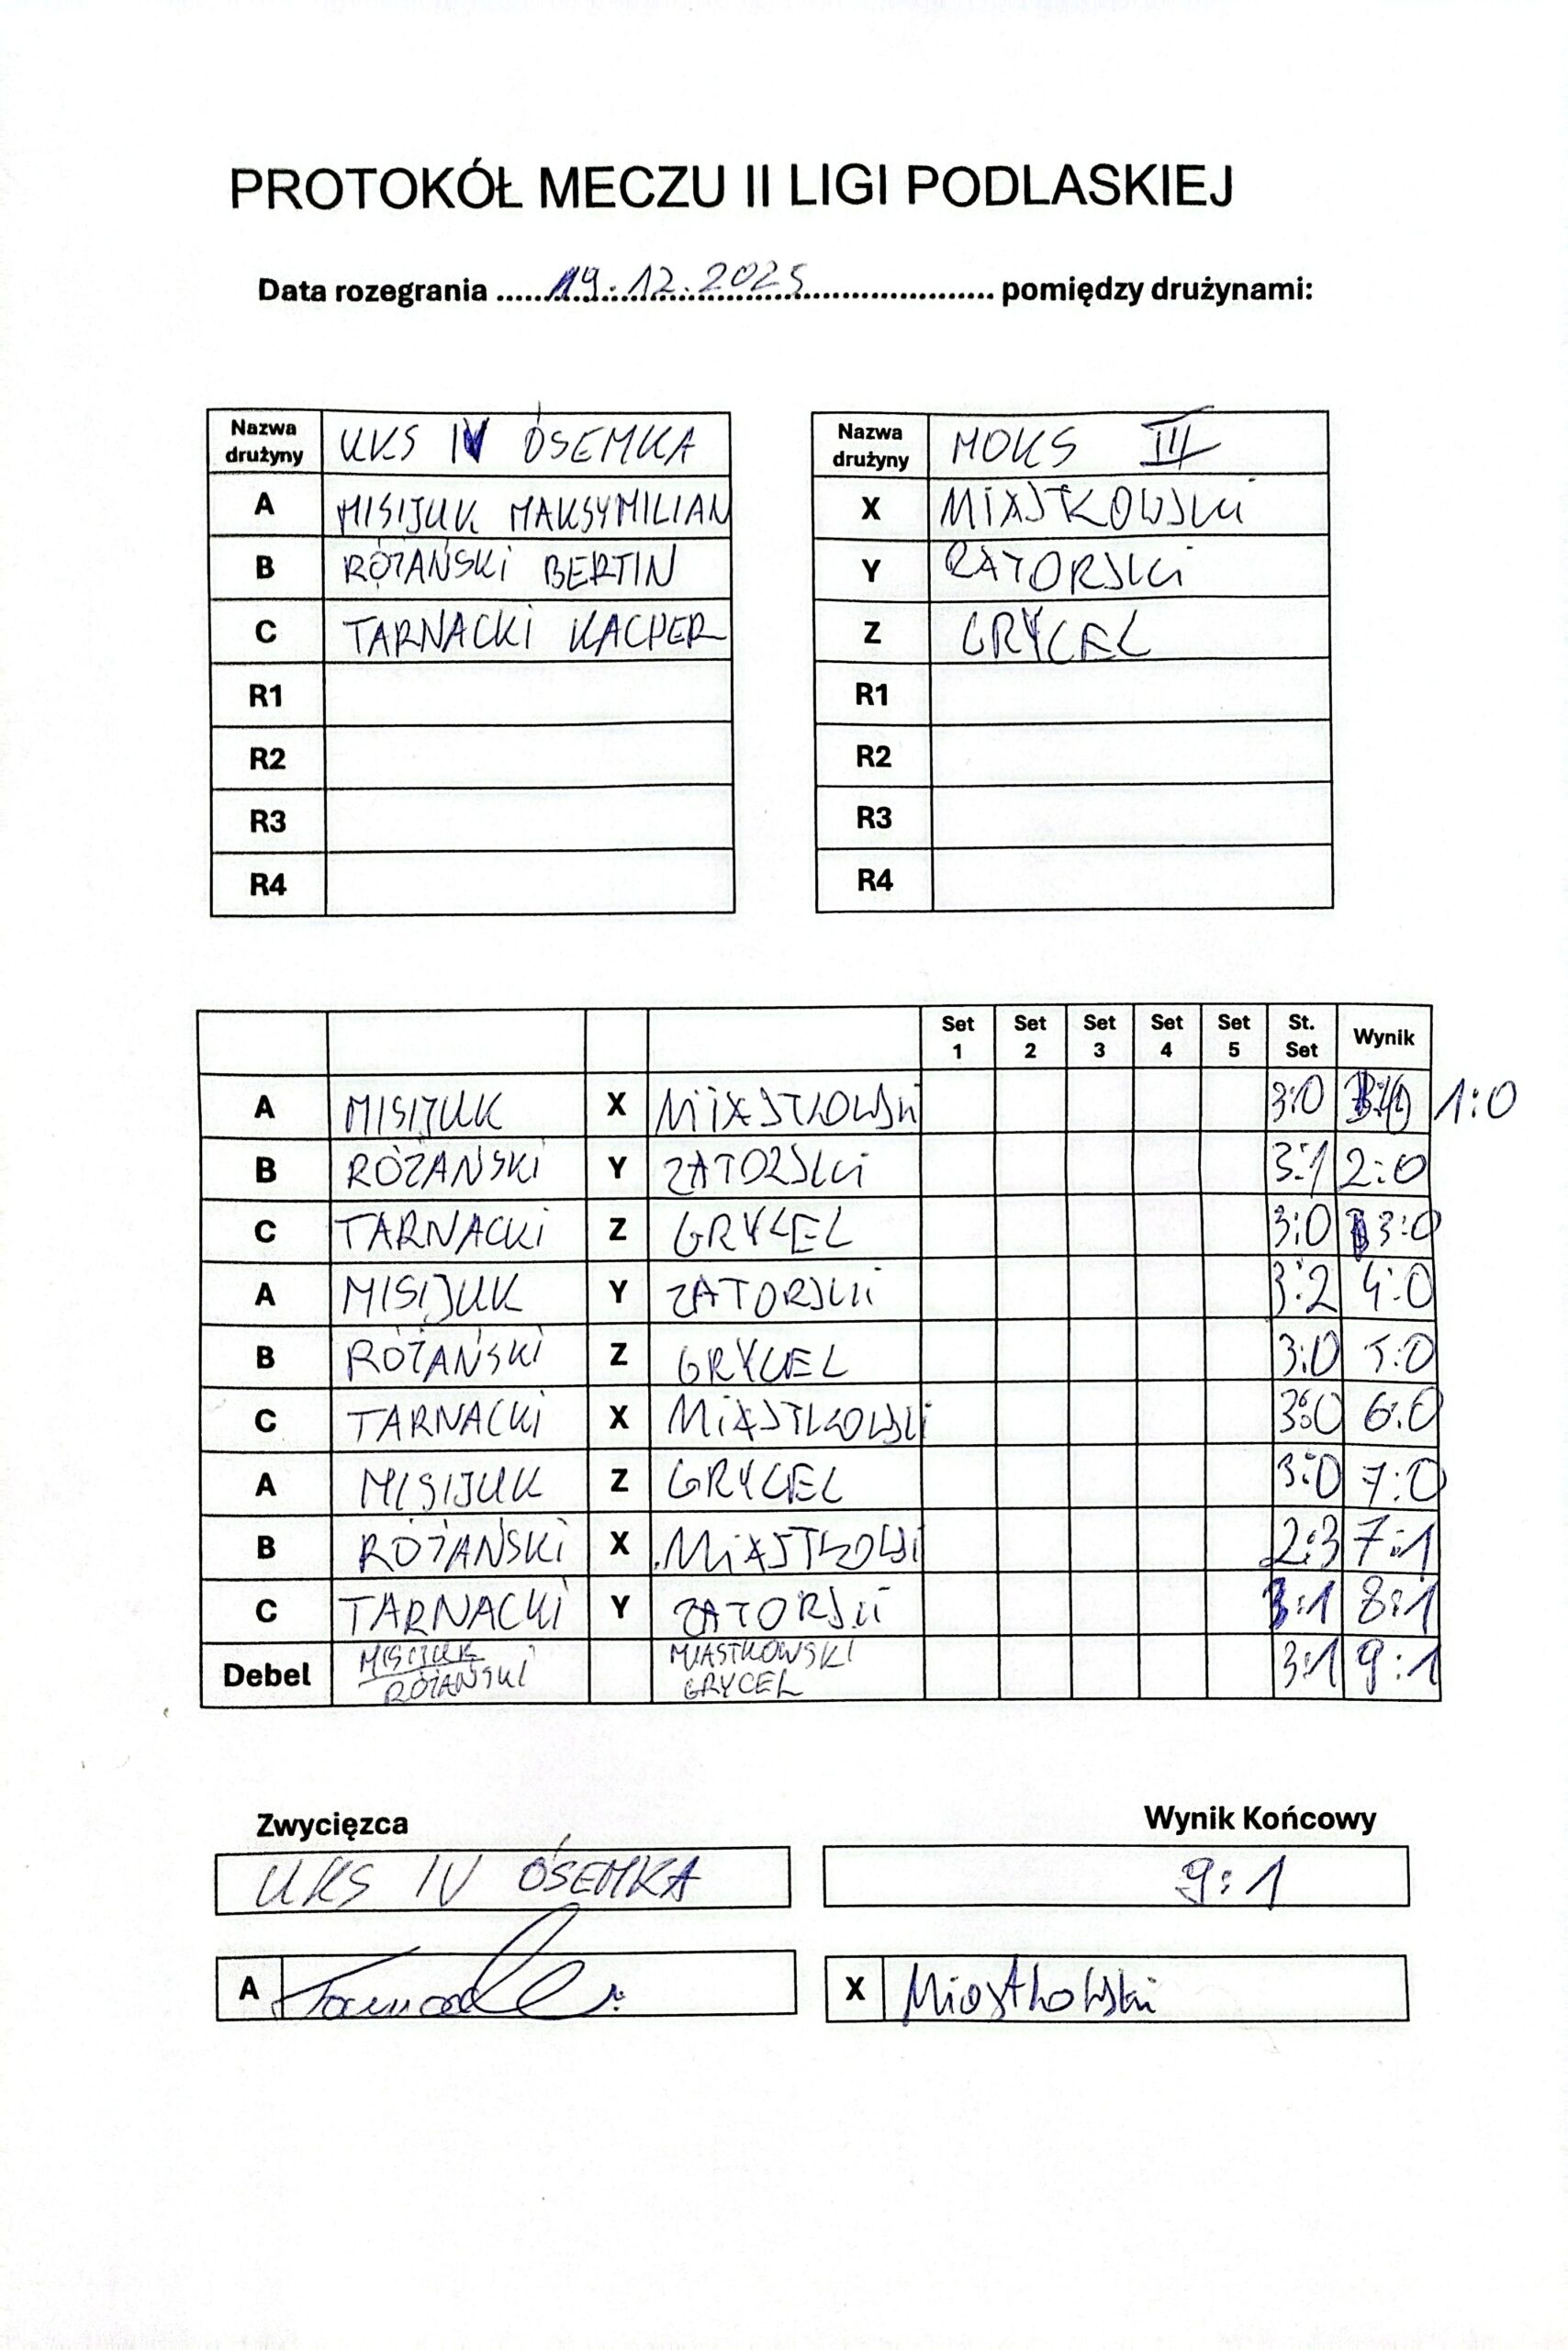 PROTOKÓŁ MECZU II LIGI PODLASKIEJ
Data rozegrania ......19.12.2025...................... pomiędzy drużynami:
Nazwa drużyny UKS IV ÓSEMKA
A MISIJUK MAKSYMILIAN
B RÓŻAŃSKI BERTIN
C TARNACKI KACPER
R1
R2
R3
R4
Nazwa drużyny MOKS III
X MIASTKOWSKI
Y ZATORSKI
Z GRYCEL
R1
R2
R3
R4
Set 1 Set 2 Set 3 Set 4 Set 5 St. Set Wynik
A MISIJUK X MIASTKOWSKI 3:0 1:0
B RÓŻAŃSKI Y ZATORSKI 3:1 2:0
C TARNACKI Z GRYCEL 3:0 3:0
A MISIJUK Y ZATORSKI 3:2 4:0
B RÓŻAŃSKI Z GRYCEL 3:0 5:0
C TARNACKI X MIASTKOWSKI 3:0 6:0
A MISIJUK Z GRYCEL 3:0 7:0
B RÓŻAŃSKI X MIASTKOWSKI 2:3 7:1
C TARNACKI Y ZATORSKI 3:1 8:1
Debel MISIJUK RÓŻAŃSKI MIASTKOWSKI GRYCEL 3:1 9:1
Zwycięzca Wynik Końcowy
UKS IV ÓSEMKA 9:1
A
X Miastkowski